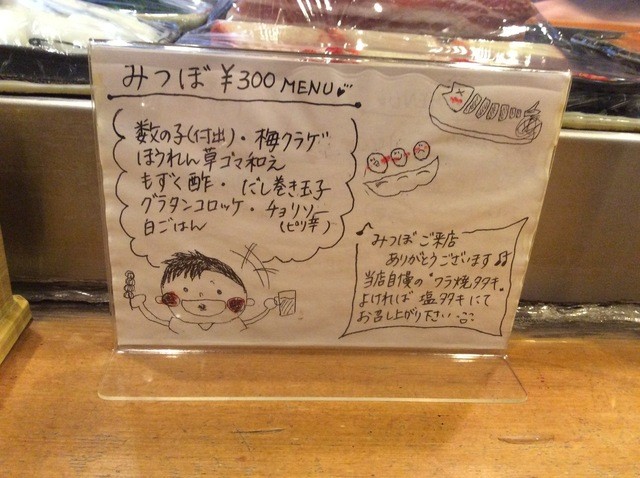 みつぼ ¥300 MENU
数の子(付出)・梅クラゲ
ほうれん草ゴマ和え
もずく酢・だし巻き玉子
グラタンコロッケ・チョリソー
白ごはん (ピリ辛)
みつぼご来店
ありがとうございます
当店自慢の"ワラ焼タタキ"
よければ 塩タタキにて
お召し上がり下さい